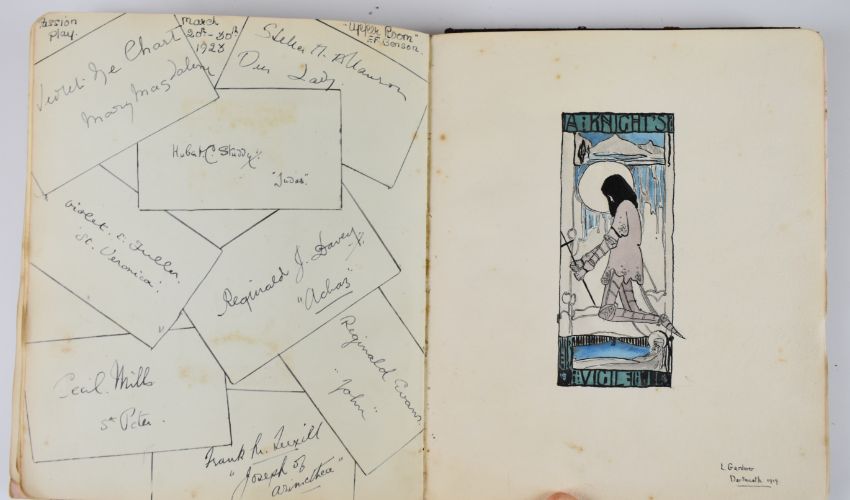 Passion
Play.
March
20th-30th
1928
"Upper Room"
EF Benson
Chart
Mary Magdalene
Stella M.
Our Lady
Hubert C.
"Judas"
Violet S. Fuller
"St. Veronica".
Reginald J. Davey
"Achaz"
Reginald Evans
"John"
Cecil Mills
St Peter.
Frank
"Joseph of
Arimethea"
A:KNIGHT'S
VIGIL
L. Gardner
Dartmouth 1919.